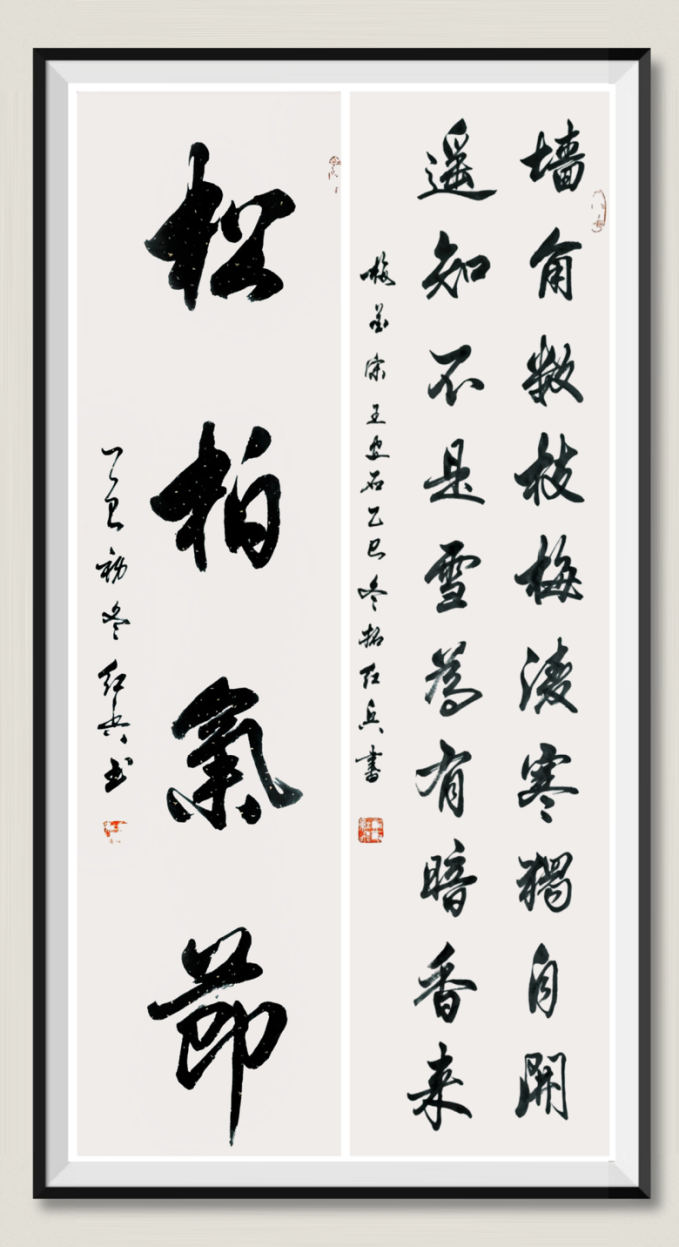 墙角数枝梅凌寒獨自開
遥知不是雪為有暗香来
梅花宋王安石乙巳冬拓红兵書
松柏氣節
乙巳初冬红兵书